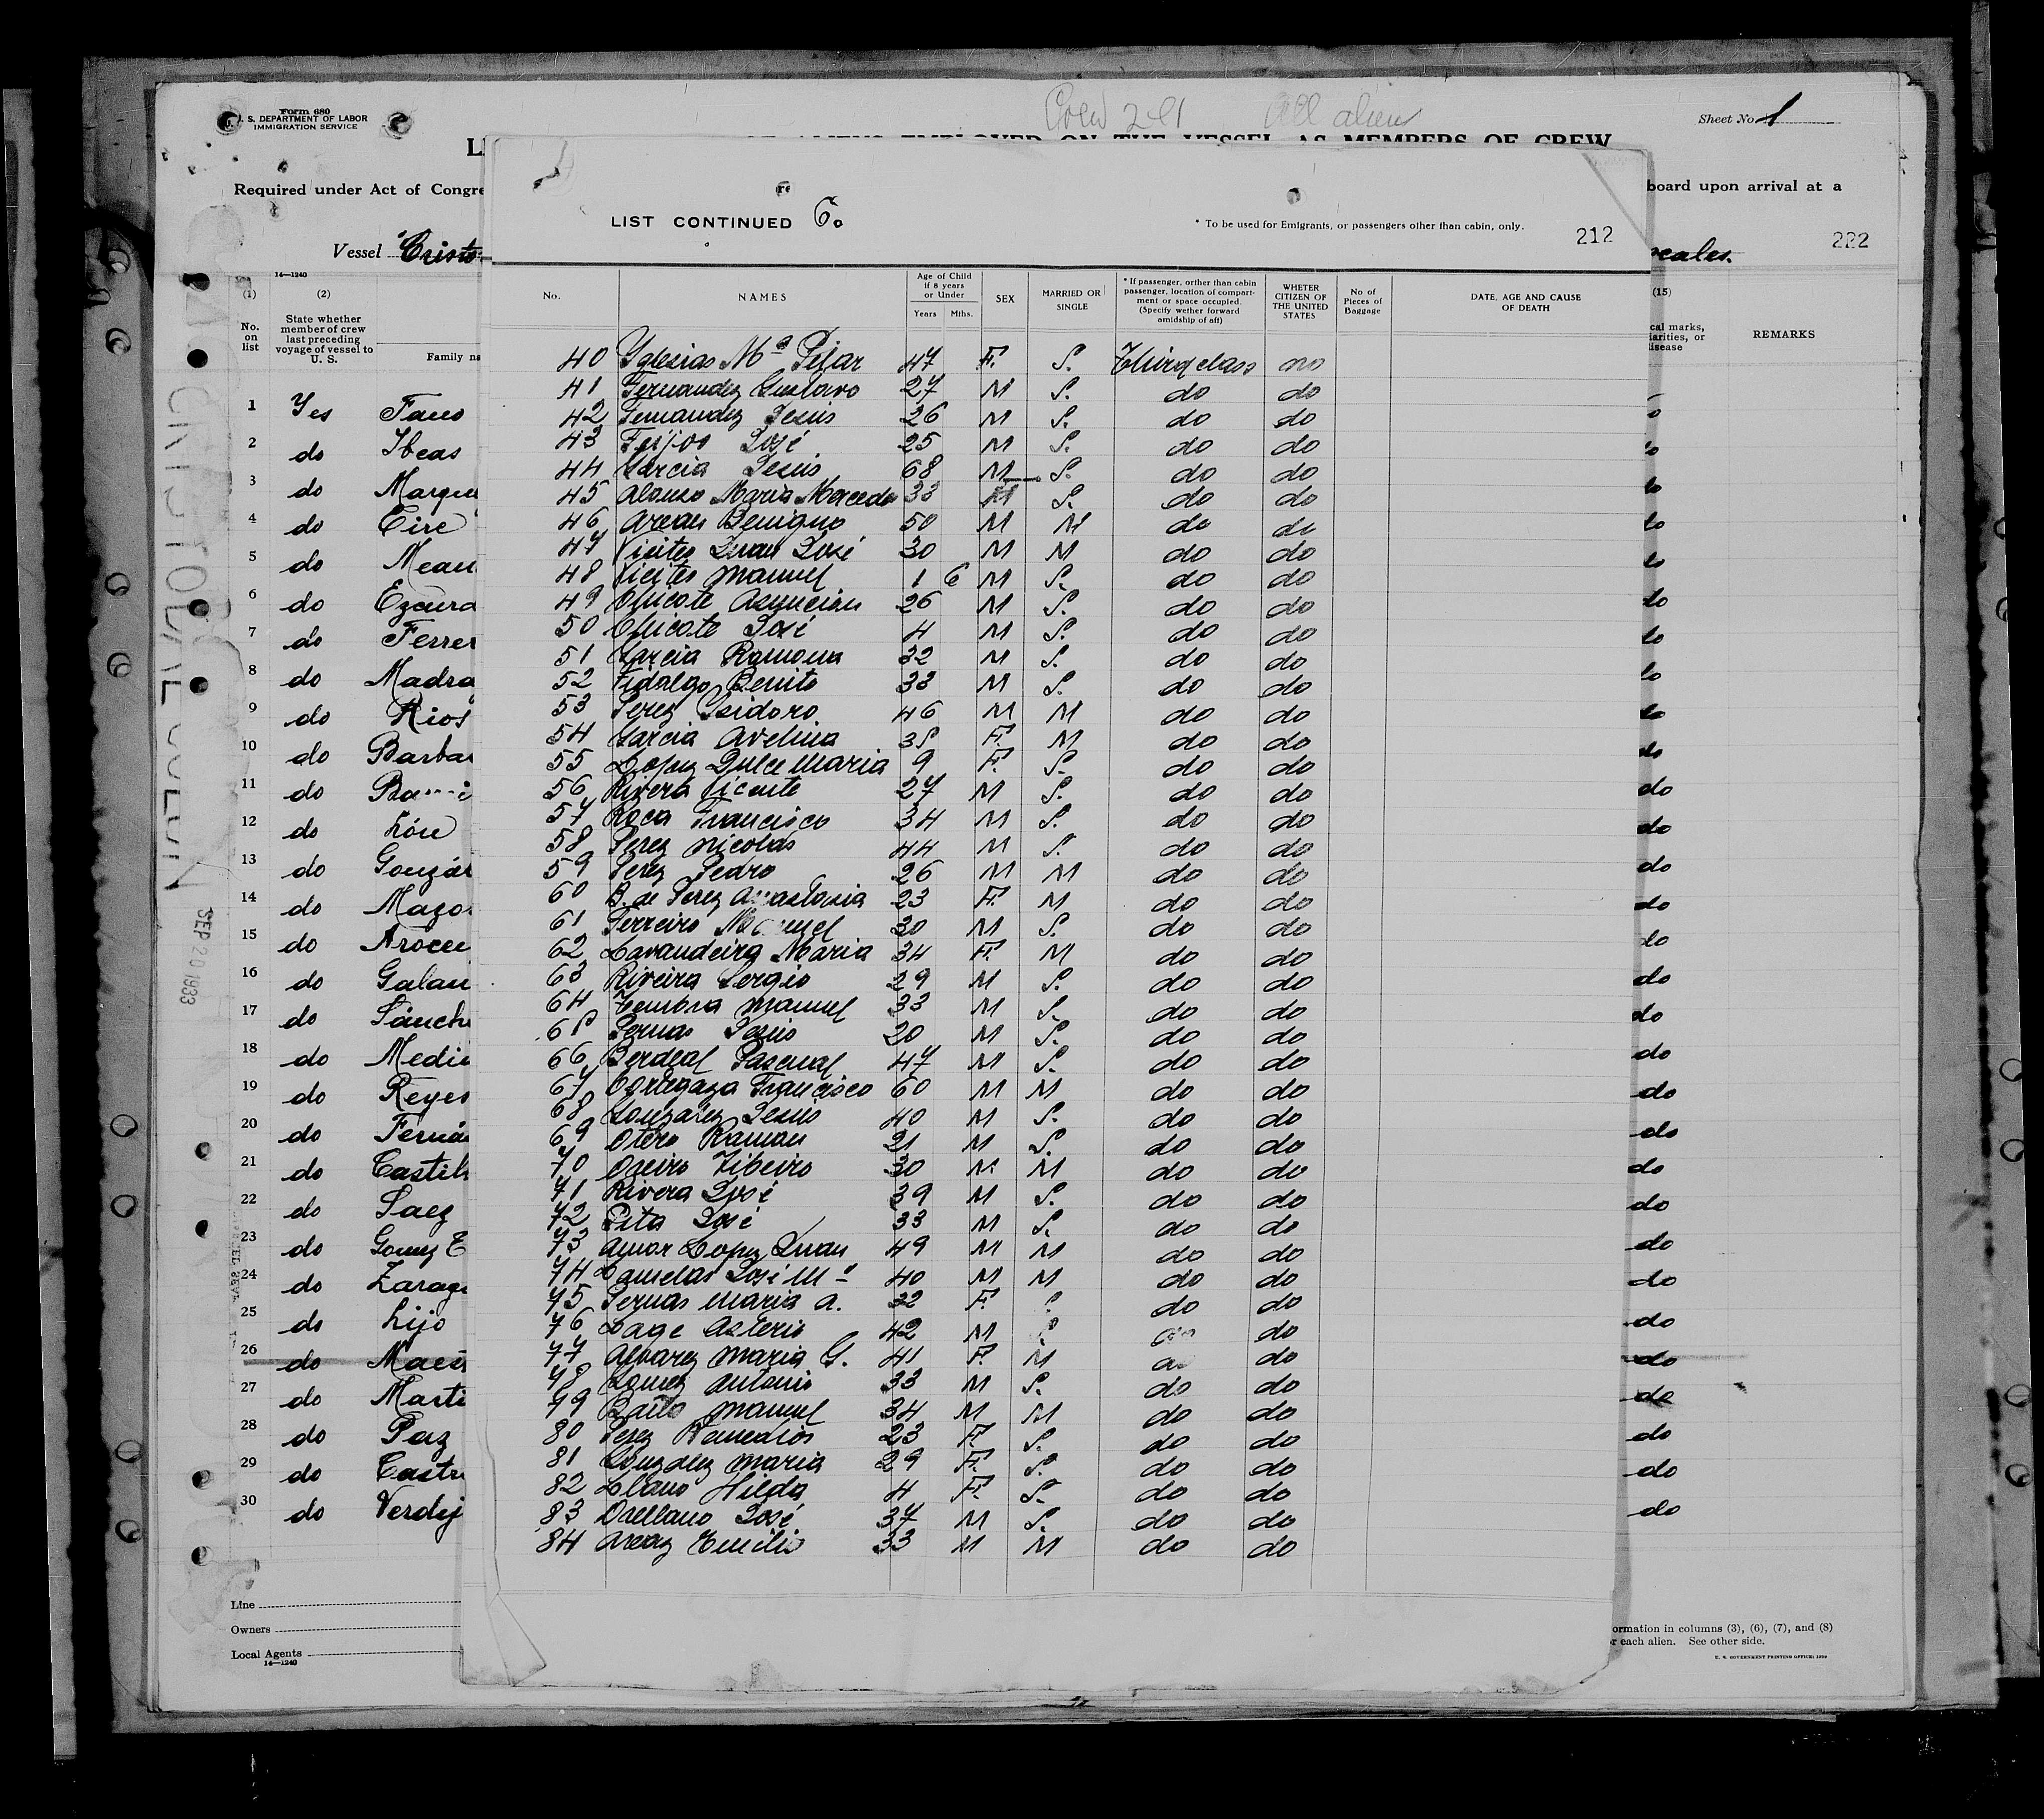 Form 680
U. S. DEPARTMENT OF LABOR
IMMIGRATION SERVICE
Crew 201 All alien
Sheet No. 1
ALIENS EMPLOYED ON THE VESSEL AS MEMBERS OF CREW
Required under Act of Congre
board upon arrival at a
Vessel "Cristo
222
14—1240
(1) (2) (15)
No. on list
State whether member of crew last preceding voyage of vessel to U. S.
Family na
cal marks, iarities, or disease
REMARKS
1 Yes Fano
2 do Ibeas
3 do Marque
4 do Eire
5 do
6 do Ezcurd
7 do Ferrer
8 do Madra
9 do Rios
10 do Barba
11 do
12 do
13 do Gonzál
14 do Mazo
15 do Arocee
16 do Galan
17 do Sánch
18 do Medi
19 do Reyes
20 do Ferná
21 do Castil
22 do Saez
23 do Gomez E
24 do Zarag
25 do Lijo
26 do Maes
27 do Marti
28 do Paz
29 do Castr
30 do Verdej
Line
Owners
Local Agents
14—1240
SEP 20 1933
LIST CONTINUED 6.
* To be used for Emigrants, or passengers other than cabin, only.
212
No.
NAMES
Age of Child if 8 years or Under
Years Mths.
SEX
MARRIED OR SINGLE
* If passenger, orther than cabin passenger, location of compartment or space occupied. (Specify wether forward amidship of aft)
WHETER CITIZEN OF THE UNITED STATES
No of Pieces of Baggage
DATE, AGE AND CAUSE OF DEATH
40 Yglesias Mª Pilar 47 F. S. Third class no
41 Fernandez Gustavo 27 M S. do do
42 Fernandez Jesús 26 M S. do do
43 Feijoo José 25 M S. do do
44 Garcia Jesús 68 M S. do do
45 Alonso Maria Mercedes 33 M S. do do
46 Arean Benigno 50 M M do do
47 Vieites Juan José 30 M M do do
48 Vieites Manuel 1 6 M S. do do
49 Chicote Asuncion 26 M S. do do
50 Chicote José 4 M S. do do
51 Garcia Ramona 32 M S. do do
52 Fidalgo Benito 33 M S. do do
53 Perez Isidoro 46 M M do do
54 Garcia Avelina 35 F. M do do
55 Lopez Dulce Maria 9 F. S. do do
56 Rivera Vicente 27 M S. do do
57 Roca Francisco 34 M S. do do
58 Perez Nicolás 44 M S. do do
59 Perez Pedro 26 M M do do
60 B. de Perez Anastasia 23 F. M do do
61 Ferreiro Manuel 30 M S. do do
62 Lavandeira Maria 34 F. M do do
63 Riveira Sergio 29 M S. do do
64 Tembra Manuel 33 M S. do do
65 Pernas Jesús 20 M S. do do
66 Berdeal Pascual 47 M S. do do
67 Cortegaza Francisco 60 M M do do
68 Gonzalez Jesús 40 M S. do do
69 Otero Ramon 21 M S. do do
70 Oseiro 30 M M do do
71 Rivera José 39 M S. do do
72 Pita José 33 M S. do do
73 Amor Lopez Juan 49 M M do do
74 Camelas José Mª 40 M M do do
75 Pernas Maria A. 32 F. S. do do
76 Lage Asterio 42 M do
77 Alvarez Maria G. 41 F. M do
78 Gomez Antonio 33 M S. do do
79 Manuel 34 M M do do
80 Perez Remedios 23 F. S. do do
81 Gonzalez Maria 29 F. S. do do
82 Llano Hilda 4 F. S. do do
83 Orellano José 37 M S. do do
84 Areas Emilio 33 M M do do
ormation in columns (3), (6), (7), and (8)
r each alien. See other side.
U. S. GOVERNMENT PRINTING OFFICE: 1929